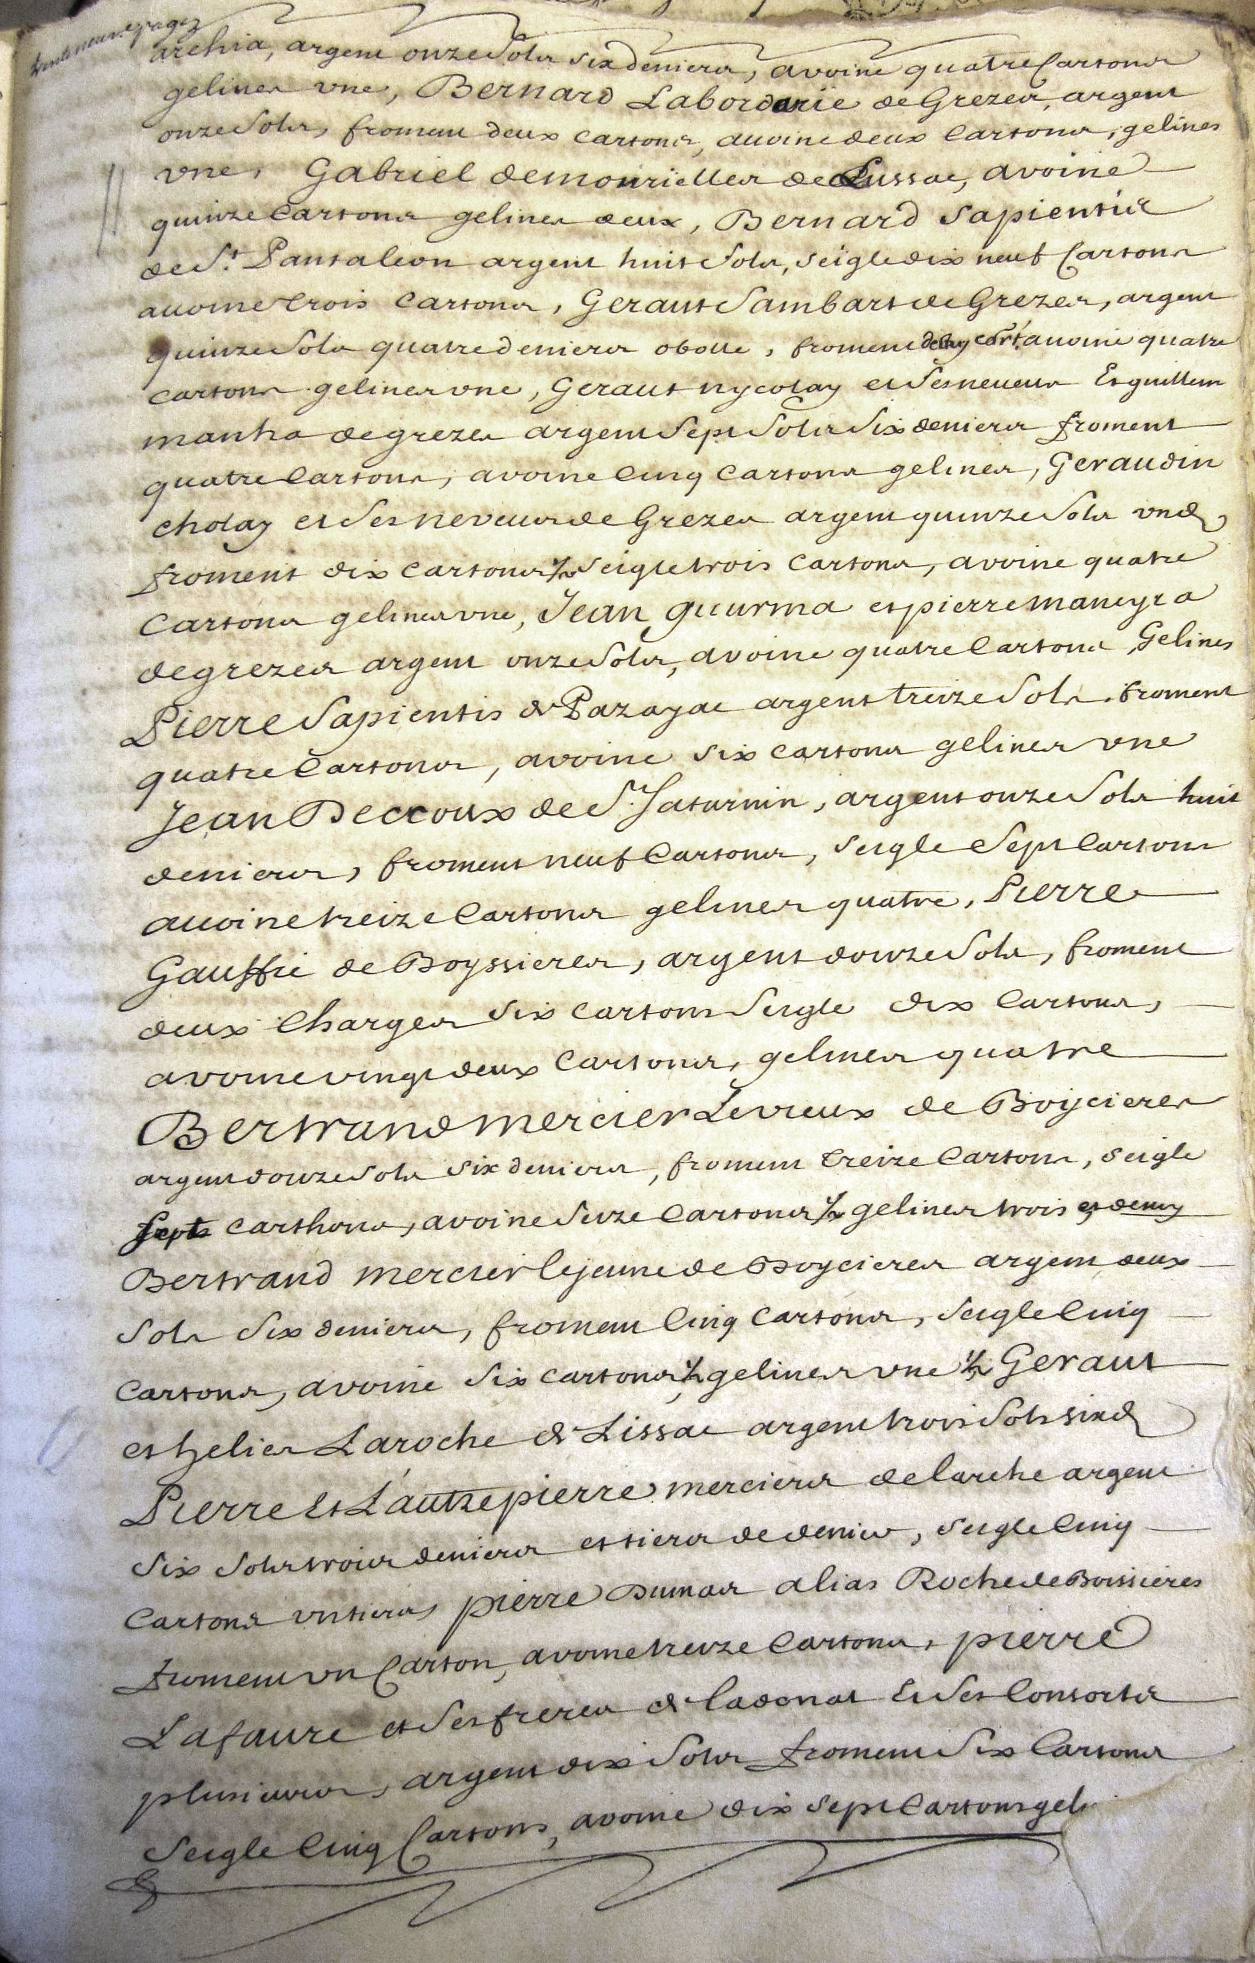 archia, argent onze Sols six deniers, avoine quatre Cartons
gelines vne, Bernard Laborderie de Grezes, argent
onze Sols, froment deux cartons, auoine deux Cartons, gelines
vne, Gabriel de de Lussac, avoine
quinze Cartons gelines deux, Bernard Sapientis
de St. Pantaleon argent huit Sols, Seigle dix neuf Cartons
auoine trois Cartons, Geraut Lambart de Grezes, argent
quinze Sols quatre deniers obolle, froment demy cart. auoine quatre
cartons gelines vne, Geraut nycolay et Ses neveus Et guillem
manha de grezes argent Sept Sols Six deniers froment
quatre Cartons, avoine Cinq Cartons gelines, Geraudin
cholay et Ses neveus de Grezes argent quinze Sols vn d,
froment dix cartons 1/2 Seigle trois Cartons, avoine quatre
Cartons gelines vne, Jean gourma et pierre maneyra
de grezes argent onze Sols, avoine quatre Cartons Gelines
Pierre Sapientis de Pazayac argent treize Sols froment
quatre Cartons, avoine six cartons gelines vne
Jean Deccoux de St. Saturnin, argent onze Sols huit
deniers, froment neuf Cartons, Seigle Sept Cartons
auoine treize Cartons gelines quatre, Pierre
Gauffre de Boyssieres, argent douze Sols, froment
deux Charges Six cartons Seigle dix Cartons,
avoine vingt deux Cartons, gelines quatre
Bertrand mercier Levieux de Boycieres
argent douze Sols six deniers, froment treize Cartons, Seigle
Sept Carthons, avoine Seize Cartons 1/2 gelines trois et demy
Bertrand mercier lejeune de Boycieres argent deux
Sols Six deniers, froment Cinq Cartons, Seigle Cinq
Cartons, avoine Six cartons 1/2 gelines vne 1/2 Geraut
et helies Laroche de Lissac argent trois Sols Six d
Pierre Et L'autre pierre merciers de larche argent
Six Sols trois deniers et tiers de denier, Seigle Cinq
Cartons vn tiers pierre Dumas alias Roche de Boissieres
froment vn Carton, avoine treize Cartons, pierre
Lafaure et Ses freres de Ladonat Et Ses Consorts
plusieurs, argent dix Sols froment Six Cartons
Seigle Cinq Cartons, avoine dix sept Cartons gel